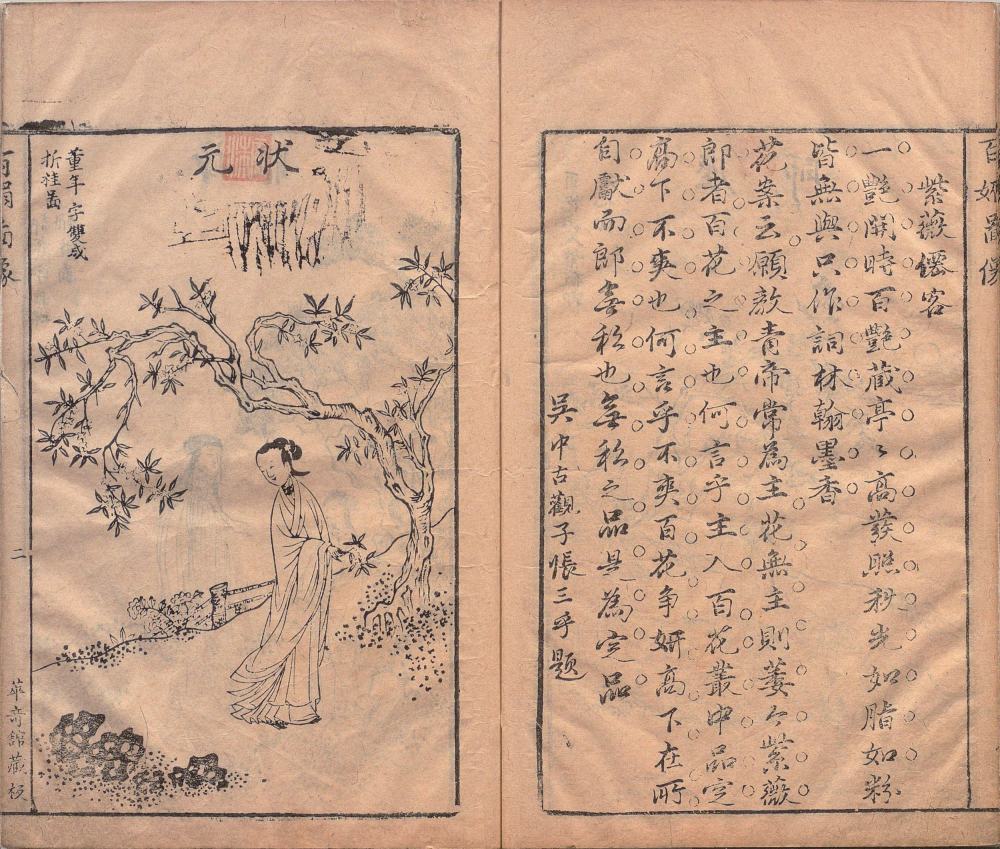 紫薇僊客
一艷開時百艷藏亭〻高發照秋光如脂如粉
皆無與只作詞材翰墨香
花案云願教青帝常為主花無主則萎个紫薇
郎者百花之主也何言乎主入百花叢中品定
高下不爽也何言乎不爽百花争妍高下在所
自獻而郎無私也無私之品是為定品
吳中古觀子悵三乎題
状元
董年字雙成
折桂啚
二
華奇舘藏板